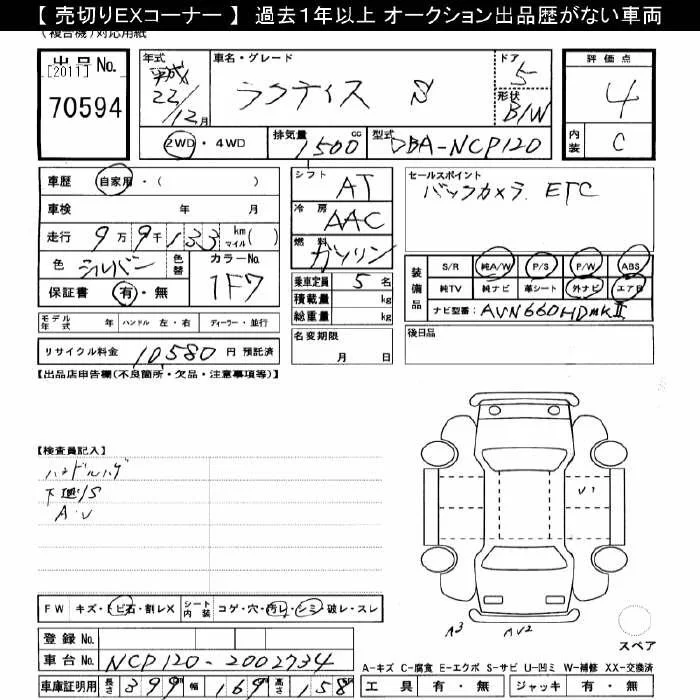 【 売切りEXコーナー 】 過去１年以上 オークション出品歴がない車両
(複合機)対応用紙
出品No.
[2011]
70594
年式
平成
22/12月
車名・グレード
ラクティス S
ドア
5
形状
B/W
評価点
4
内装
C
2WD・4WD
排気量
1500cc
型式
DBA-NCP120
車歴 自家用・( )
車検 年 月
走行 9万9千133 km マイル( )
色 シルバー 色替 カラーNo. 1F7
保証書 有・無
モデル年式 年 ハンドル 左・右 ディーラー・並行
リサイクル料金 10580 円 預託済
シフト AT
冷房 AAC
燃料 ガソリン
乗車定員 5 名
積載量 kg
総重量 kg
名変期限
月 日
セールスポイント
バックカメラ ETC
装備品
S/R 純A/W P/S P/W ABS
純TV 純ナビ 革シート 外ナビ エアB
ナビ型番: AVN660HDmkⅡ
後日品
【出品店申告欄(不良箇所・欠品・注意事項等)】
【検査員記入】
ハンドルハゲ
下廻/S
A・U
U1
A3
AU2
スペア
FW キズ・トビ石・割レX シート内装 コゲ・穴・汚レ・シミ・破レ・スレ
登録 No.
車台 No. NCP120-2002734
車庫証明用 長さ 399 幅 169 高さ 158
A-キズ C-腐食 E-エクボ S-サビ U-凹ミ W-補修 XX-交換済
工具 有・無 ジャッキ 有・無